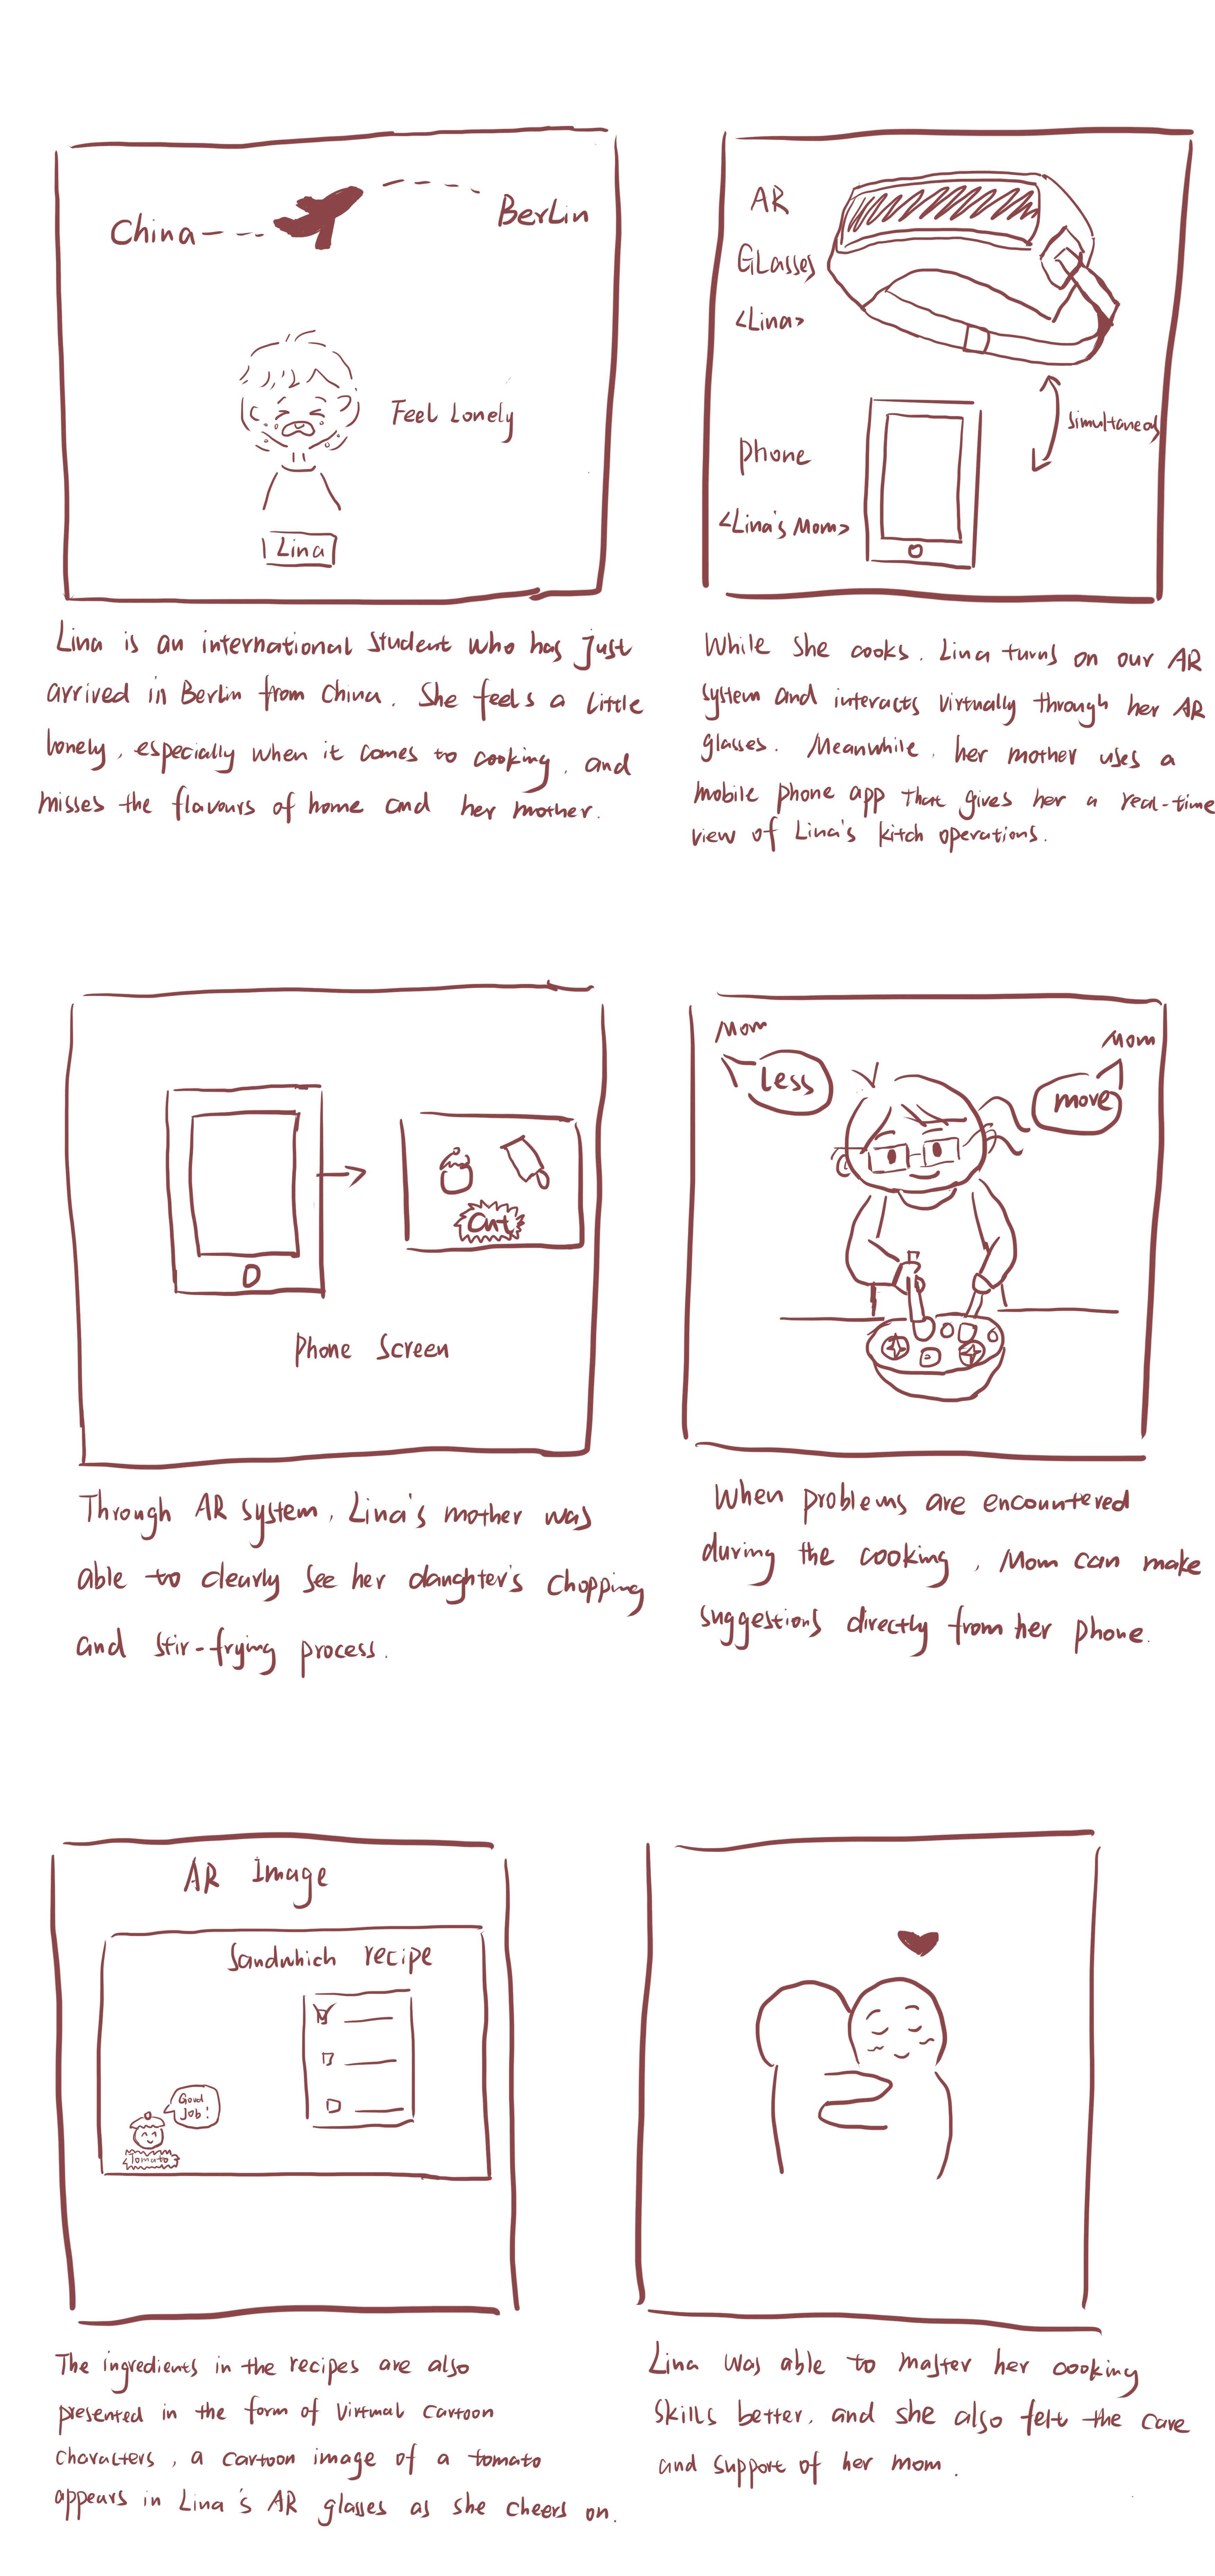 China
Berlin
Feel Lonely
Lina
Lina is an international student who has just
arrived in Berlin from China. She feels a little
lonely, especially when it comes to cooking, and
misses the flavours of home and her mother.
AR
Glasses
<Lina>
simultaneos
phone
<Lina's Mom>
While she cooks, Lina turns on our AR
system and interacts virtually through her AR
glasses. Meanwhile, her mother uses a
mobile phone app that gives her a real-time
view of Lina's kitch operations.
Cut
Phone Screen
Through AR system, Lina's mother was
able to clearly see her daughter's chopping
and stir-frying process.
Mom
Less
Mom
move
When problems are encountered
during the cooking, Mom can make
suggestions directly from her phone.
AR Image
Sandwhich recipe
Good
Job!
Tomato
The ingredients in the recipes are also
presented in the form of virtual cartoon
characters, a cartoon image of a tomato
appears in Lina's AR glasses as she cheers on.
Lina was able to master her cooking
skills better, and she also felt the care
and support of her mom.